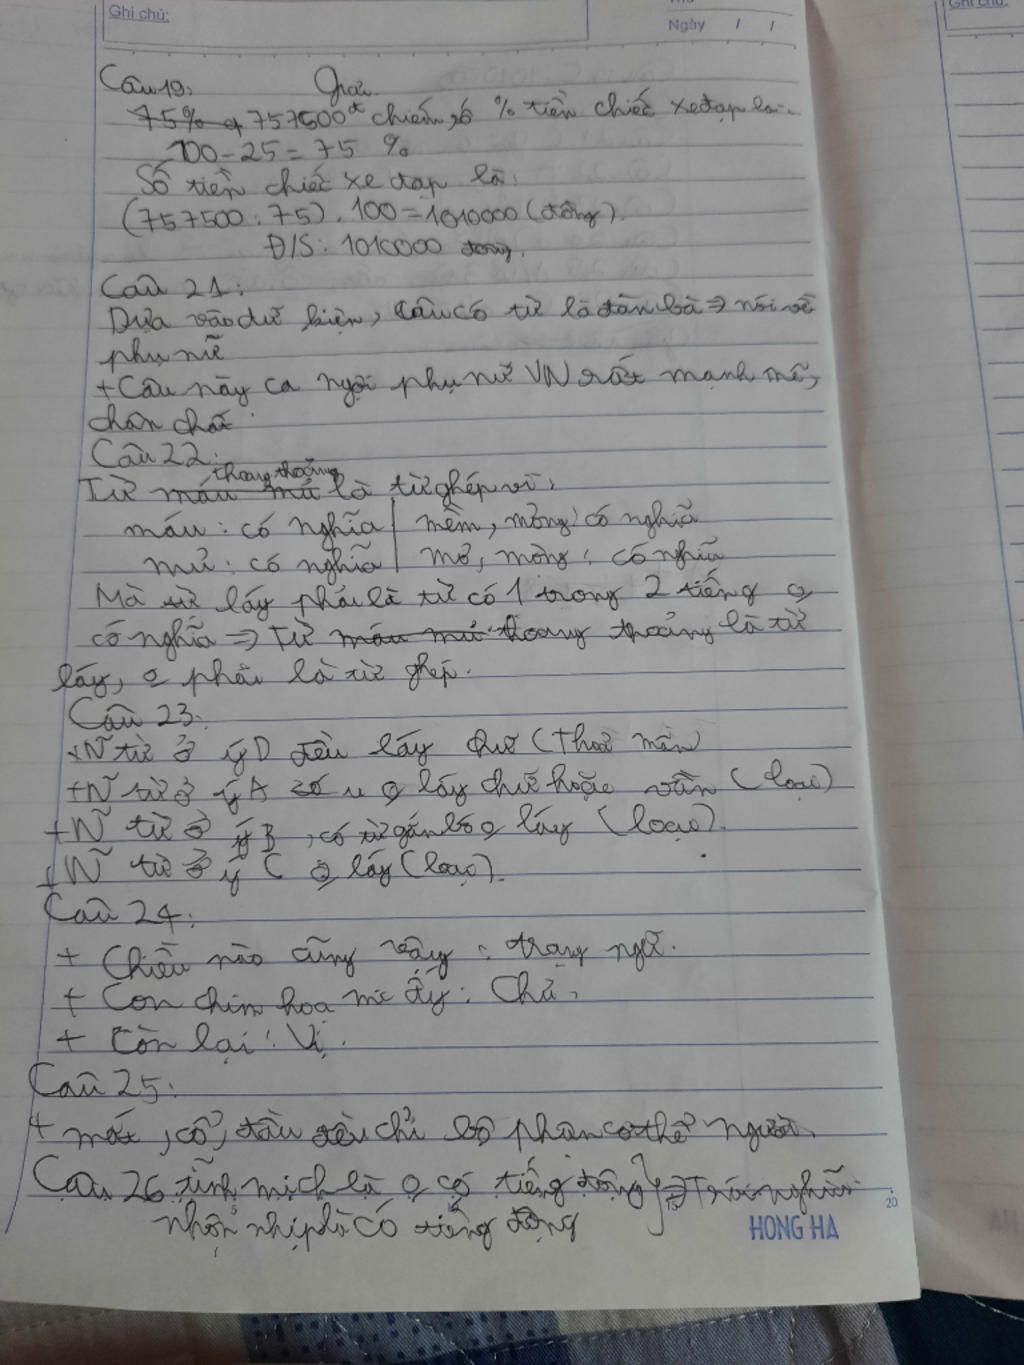 Ghi chú:
Ngày / /
Ghi chú:
Câu 19: Giải
75% 757500đ chiếm số % tiền chiếc xe đạp là:
100 - 25 = 75 %
Số tiền chiếc xe đạp là:
(757500 : 75) . 100 = 1010000 (đồng).
Đ/S: 1010000 đồng.
Câu 21:
Dựa vào dữ kiện, câu có từ là đàn bà => nói về
phụ nữ
+ Câu này ca ngợi phụ nữ VN rất mạnh mẽ,
chân chất
Câu 22:
thoang thoảng
Từ máu mủ là từ ghép vì:
máu: có nghĩa | mềm, mỏng: có nghĩa
mủ: có nghĩa | mơ, mòng: có nghĩa
Mà từ láy phải là từ có 1 trong 2 tiếng o
có nghĩa => Từ máu mủ thoang thoảng là từ
láy, o phải là từ ghép.
Câu 23:
+ N~ từ ở ý D đều láy chữ (thoả mãn)
+ N~ từ ở ý A có o láy chữ hoặc vần (loại)
+ N~ từ ở ý B, có từ gắn bó o láy (loại).
+ N~ từ ở ý C o láy (loại).
Câu 24:
+ Chiều nào cũng vậy: trạng ngữ.
+ Con chim hoạ mi ấy: Chủ.
+ Còn lại: Vị.
Câu 25:
+ mắt, cổ, đầu đều chỉ bộ phận cơ thể người.
Câu 26 tĩnh mịch là o có tiếng động } => Trái nghĩa
nhộn nhịp là có tiếng động
5 15 20
HONG HA